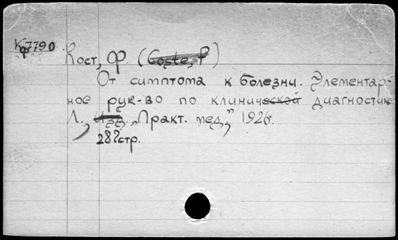 Кф7790
Кост, Ф (Coste, F)
От симптома к болезни. Элементар-
ное рук-во по клинической диагностик
Л., Изд. „Практ. мед.,” 1926.
282стр.